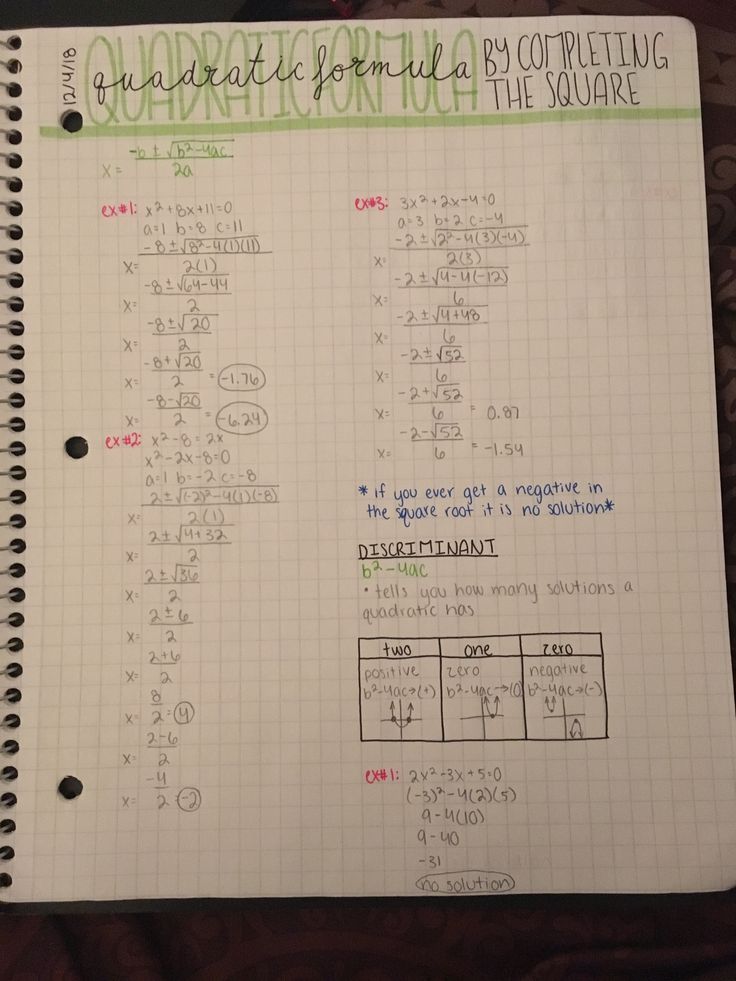 12/4/18
QUADRATIC FORMULA
quadratic formula BY COMPLETING
THE SQUARE
x = -b ± √b²-4ac
2a
ex#1: x² + 8x + 11 = 0
a=1 b=8 c=11
-8 ± √8²-4(1)(11)
x= 2(1)
-8 ± √64-44
x= 2
-8 ± √20
x= 2
-8 + √20
x= 2 = -1.76
-8 - √20
x= 2 = -6.24
ex#2: x² - 8 = 2x
x² - 2x - 8 = 0
a=1 b=-2 c=-8
2 ± √(-2)²-4(1)(-8)
x= 2(1)
2 ± √4+32
x= 2
2 ± √36
x= 2
2 ± 6
x= 2
2+6
x= 2
8
x= 2 = 4
2-6
x= 2
-4
x= 2 -2
ex#3: 3x² + 2x - 4 = 0
a=3 b=2 c=-4
-2 ± √2²-4(3)(-4)
x= 2(3)
-2 ± √4-4(-12)
x= 6
-2 ± √4+48
x= 6
-2 ± √52
x= 6
-2 + √52
x= 6 = 0.87
-2 - √52
x= 6 = -1.54
* if you ever get a negative in
the square root it is no solution*
DISCRIMINANT
b²-4ac
• tells you how many solutions a
quadratic has
two one zero
positive zero negative
b²-4ac→(+) b²-4ac→(0) b²-4ac→(-)
ex#1: 2x² - 3x + 5 = 0
(-3)² - 4(2)(5)
9 - 4(10)
9 - 40
-31
no solution